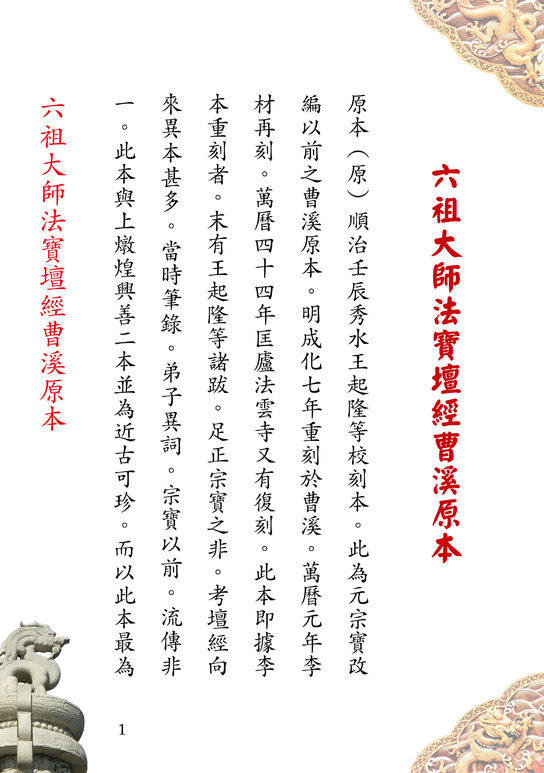 六祖大師法寶壇經曹溪原本
原本（原）順治壬辰秀水王起隆等校刻本。此為元宗寶改
編以前之曹溪原本。明成化七年重刻於曹溪。萬曆元年李
材再刻。萬曆四十四年匡廬法雲寺又有復刻。此本即據李
本重刻者。末有王起隆等諸跋。足正宗寶之非。考壇經向
來異本甚多。當時筆錄。弟子異詞。宗寶以前。流傳非
一。此本與上燉煌興善二本並為近古可珍。而以此本最為
六祖大師法寶壇經曹溪原本
1